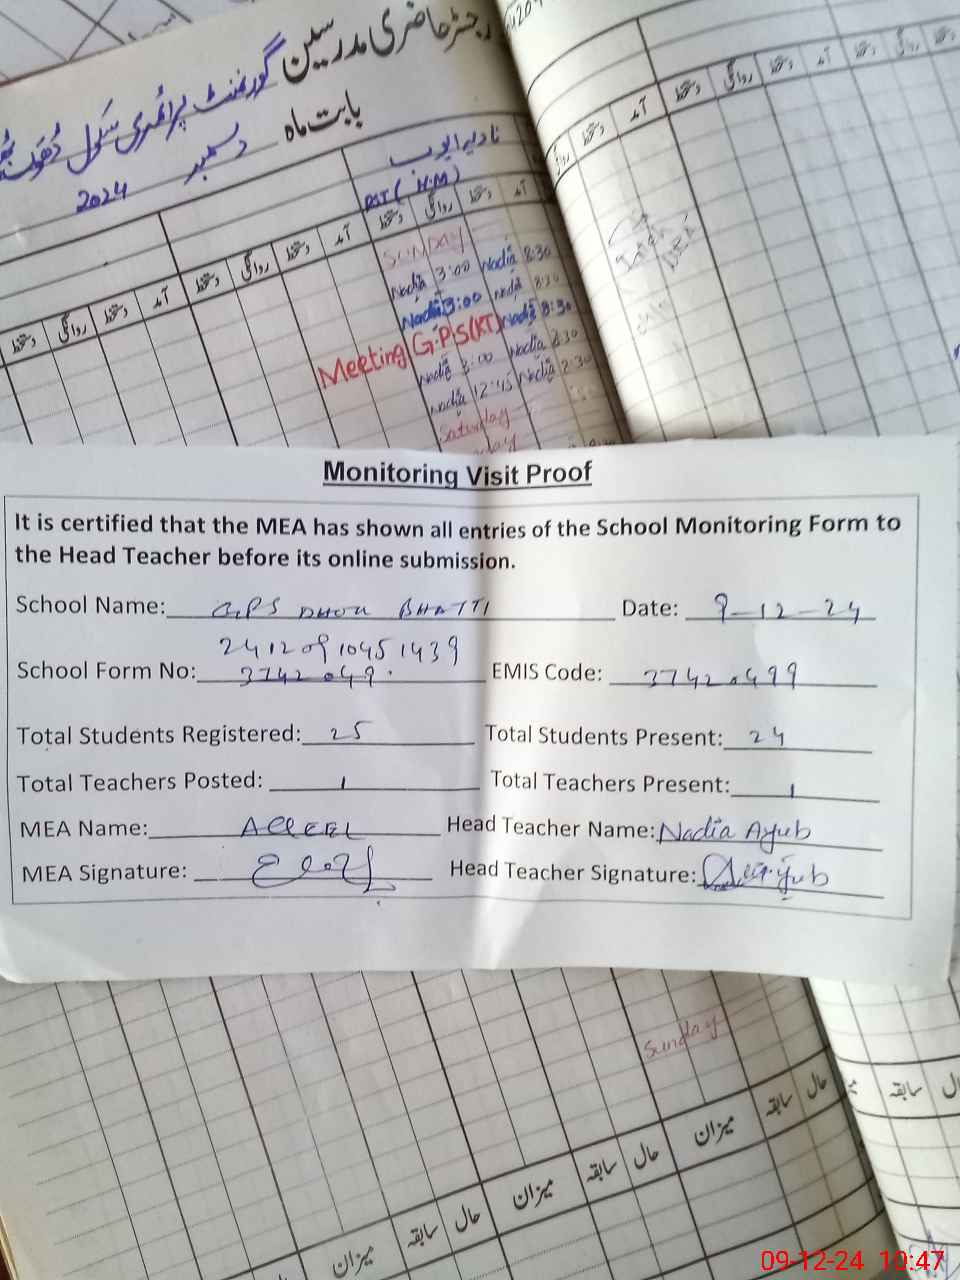 رجسٹر حاضری مدرسین
گورنمنٹ پرائمری سکول ڈھوک
بابت ماہ دسمبر 2024
نادیہ ایوب
PST (H.M)
آمد دستخط روانگی دستخط آمد دستخط روانگی دستخط آمد دستخط روانگی دستخط
SUNDAY
Nadia 3:00 Nadia 8:30
Nadia 3:00 Nadia 8:30
Meeting G.P.S(KT) Nadia 8:30
Nadia 3:00 Nadia 8:30
Nadia 12:45 Nadia 8:30
Saturday
آمد دستخط روانگی دستخط آمد دستخط روانگی
Monitoring Visit Proof
It is certified that the MEA has shown all entries of the School Monitoring Form to
the Head Teacher before its online submission.
School Name: GPS DHOK BHATTI Date: 9-12-24
24120910451439
School Form No: 3742049. EMIS Code: 37420499
Total Students Registered: 25 Total Students Present: 24
Total Teachers Posted: 1 Total Teachers Present: 1
MEA Name: Head Teacher Name: Nadia Ayub
MEA Signature: Head Teacher Signature:
Sunday
میزان حال سابقہ میزان حال سابقہ میزان حال سابقہ
حال سابقہ
09-12-24 10:47